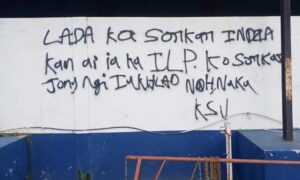 LADA KA SORKAR INDIA
kan ai ia ka ILP. Ko Sorkar
Jong Ngi IAKHLAD NOH. Naka
KSU